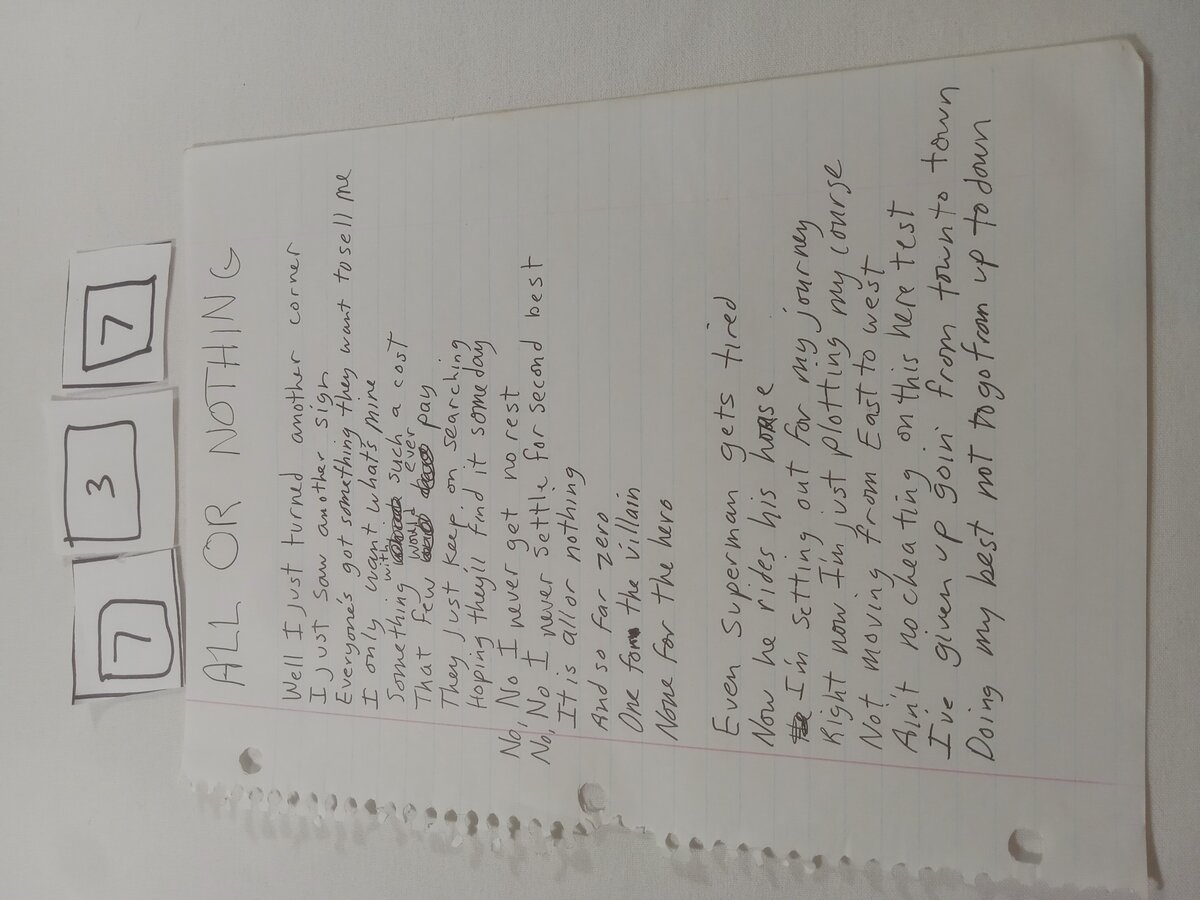 7 3 7
ALL OR NOTHING
Well I just turned another corner
I just saw another sign
Everyone's got something they want to sell me
I only want what's mine
Something with such a cost
That few would ever pay
They just keep on searching
Hoping they'll find it someday
No, No I never get no rest
No, No I never settle for second best
It is all or nothing
And so far zero
One for the villain
None for the hero
Even Superman gets tired
Now he rides his horse
I'm setting out for my journey
Right now I'm just plotting my course
Not moving from East to west
Ain't no cheating on this here test
I've given up goin' from town to town
Doing my best not to go from up to down